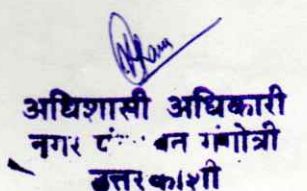 अधिशासी अधिकारी
नगर गंगोत्री
उत्तरकाशी